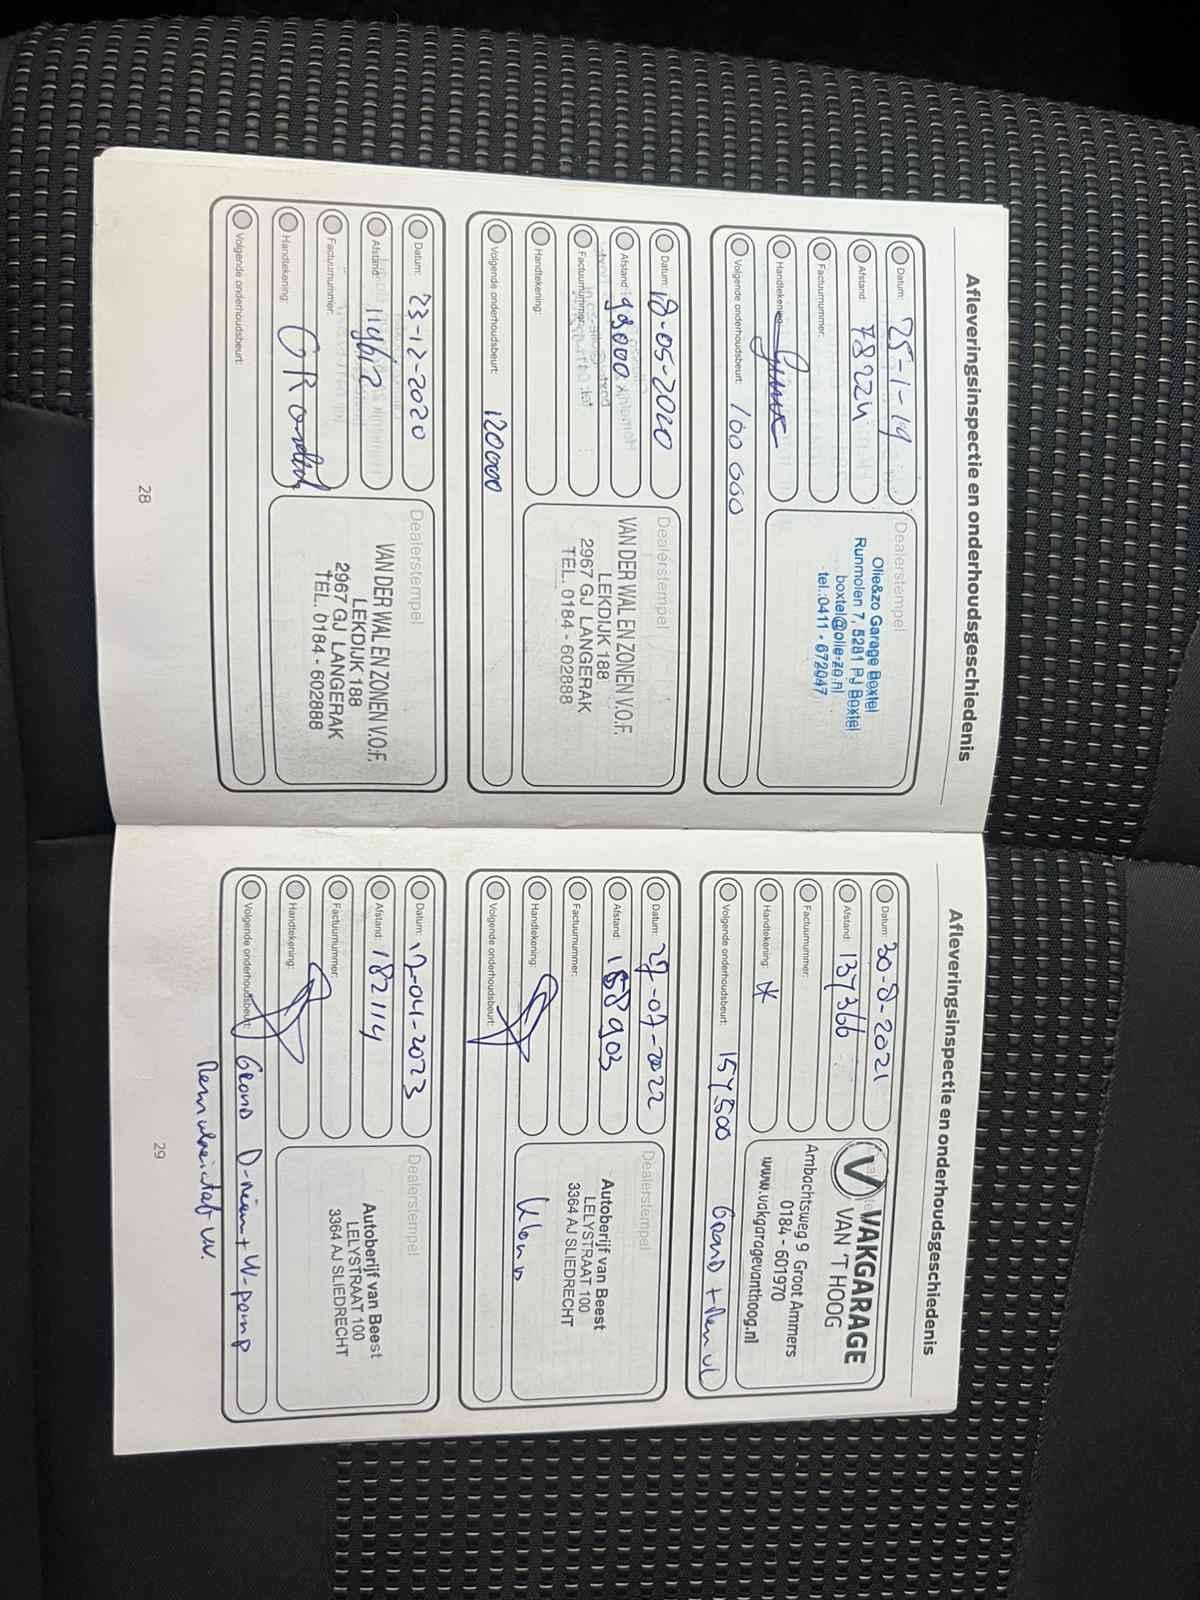 Afleveringsinspectie en onderhoudsgeschiedenis
Datum: 25-1-19
Afstand: 78224
Factuurnummer:
Handtekening:
Volgende onderhoudsbeurt: 100 000
Dealerstempel
Olie&zo Garage Boxtel
Runmolen 7, 5281 PJ Boxtel
boxtel@olie-zo.nl
tel.:0411 - 672047
Datum: 18-05-2020
Afstand: 99000
Factuurnummer:
Handtekening:
Volgende onderhoudsbeurt: 120000
Dealerstempel
VAN DER WAL EN ZONEN V.O.F.
LEKDIJK 188
2967 GJ LANGERAK
TEL. 0184 - 602888
Datum: 23-12-2020
Afstand:
Factuurnummer:
Handtekening:
Volgende onderhoudsbeurt:
Dealerstempel
VAN DER WAL EN ZONEN V.O.F.
LEKDIJK 188
2967 GJ LANGERAK
TEL. 0184 - 602888
28
Afleveringsinspectie en onderhoudsgeschiedenis
Datum: 30-8-2021
Afstand: 137366
Factuurnummer:
Handtekening: *
Volgende onderhoudsbeurt: 157500
VAKGARAGE
VAN 'T HOOG
Ambachtsweg 9 Groot Ammers
0184 - 601970
www.vakgaragevanthoog.nl
Datum: 27-07-2022
Afstand: 158903
Factuurnummer:
Handtekening:
Volgende onderhoudsbeurt:
Dealerstempel
Autoberijf van Beest
LELYSTRAAT 100
3364 AJ SLIEDRECHT
Datum: 17-04-2023
Afstand: 182114
Factuurnummer:
Handtekening:
Volgende onderhoudsbeurt: D-riem + W-pomp
Dealerstempel
Autoberijf van Beest
LELYSTRAAT 100
3364 AJ SLIEDRECHT
29